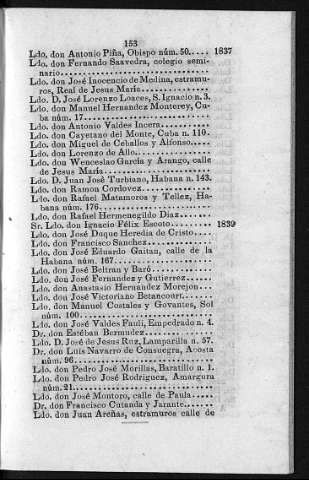 153
Ldo. don Antonio Piña, Obispo núm. 50.... 1837
Ldo. don Fernando Saavedra, colegio semi-
nario..............................
Ldo. don José Inocencio de Medina, estramu-
ros, Real de Jesus María..............
Ldo. D. José Lorenzo Loaces, S. Ignacio n. 3.
Ldo. don Manuel Hernandez Monterey, Cu-
ba núm. 17..........................
Ldo. don Antonio Valdes Incera............
Ldo. don Cayetano del Monte, Cuba n. 110.
Ldo. don Miguel de Ceballos y Alfonso....
Ldo. don Lorenzo de Allo..................
Ldo. don Wenceslao García y Arango, calle
de Jesus María......................
Ldo. D. Juan José Turbiano, Habana n. 143.
Ldo. don Ramon Cordovez..................
Ldo. don Rafael Matamoros y Tellez, Ha-
bana núm. 176........................
Ldo. don Rafael Hermenegildo Diaz........
Sr. Ldo. don Ignacio Félix Escoto........ 1839
Ldo. don José Duque Heredia de Cristo....
Ldo. don Francisco Sanchez................
Ldo. don José Eduardo Gaitan, calle de la
Habana núm. 167......................
Ldo. don José Beltran y Baró..............
Ldo. don José Fernandez y Gutierrez......
Ldo. don Anastasio Hernandez Morejon....
Ldo. don José Victoriano Betancourt......
Ldo. don Manuel Costales y Govantes, Sol
núm. 100............................
Ldo. don José Valdes Fauli, Empedrado n. 4.
Dr. don Estéban Bermudez................
Ldo. D. José de Jesus Ruz, Lamparilla n. 57.
Dr. don Luis Navarro de Consuegra, Acosta
núm. 96..............................
Ldo. don Pedro José Morillas, Baratillo n. 1.
Ldo. don Pedro José Rodriguez, Amargura
núm. 21..............................
Ldo. don José Montoro, calle de Paula....
Dr. don Francisco Cutanda y Jarante......
Ldo. don Juan Areñas, estramuros calle de